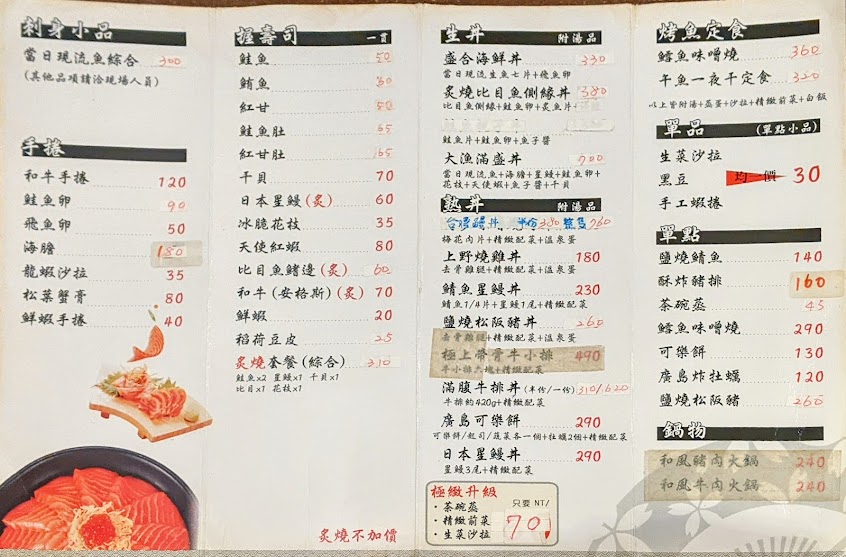 刺身小品
當日現流魚綜合 300
(其他品項請洽現場人員)
手捲
和牛手捲 120
鮭魚卵 90
飛魚卵 50
海膽 180
龍蝦沙拉 35
松葉蟹膏 80
鮮蝦手捲 40
握壽司 一貫
鮭魚 50
鮪魚
紅甘 50
鮭魚肚 65
紅甘肚 165
干貝 70
日本星鰻(炙) 60
冰脆花枝 35
天使紅蝦 80
比目魚鰭邊(炙) 60
和牛(安格斯)(炙) 70
鮮蝦 20
稻荷豆皮 25
炙燒套餐(綜合) 310
鮭魚x2 星鰻x1 干貝x1
比目x1 花枝x1
炙燒不加價
生丼 附湯品
盛合海鮮丼 330
當日現流生魚七片+飛魚卵
炙燒比目魚側緣丼 380
比目魚側緣+鮭魚卵+炙魚片+
鮭魚片+鮭魚卵+魚子醬
大漁滿盛丼 700
當日現流魚+海膽+星鰻+鮭魚卵+
花枝+天使蝦+魚子醬+干貝
熟丼 附湯品
台灣鰻丼 半份380 整尾760
梅花肉片+精緻配菜+溫泉蛋
上野燒雞丼 180
去骨雞腿+精緻配菜+溫泉蛋
鯖魚星鰻丼 230
鯖魚1/4片+星鰻1尾+精緻配菜
鹽燒松阪豬丼 260
去骨雞腿+精緻配菜+溫泉蛋
極上帶骨牛小排 490
牛小排六塊+精緻配菜
滿腹牛排丼(半份/一份) 310/620
牛排約420g+精緻配菜
廣島可樂餅 290
可樂餅/起司/蔬菜各一個+牡蠣2個+精緻配菜
日本星鰻丼 290
星鰻3尾+精緻配菜
極緻升級
只要 NT/
・茶碗蒸
・精緻前菜
・生菜沙拉
70
烤魚定食
鱈魚味噌燒 360
午魚一夜干定食 320
以上皆附湯+蒸蛋+沙拉+精緻前菜+白飯
單品 (單點小品)
生菜沙拉
黑豆 均一價 30
手工蝦捲
單點
鹽燒鯖魚 140
酥炸豬排 160
茶碗蒸 45
鱈魚味噌燒 290
可樂餅 130
廣島炸牡蠣 120
鹽燒松阪豬 260
鍋物
和風豬肉火鍋 240
和風牛肉火鍋 240